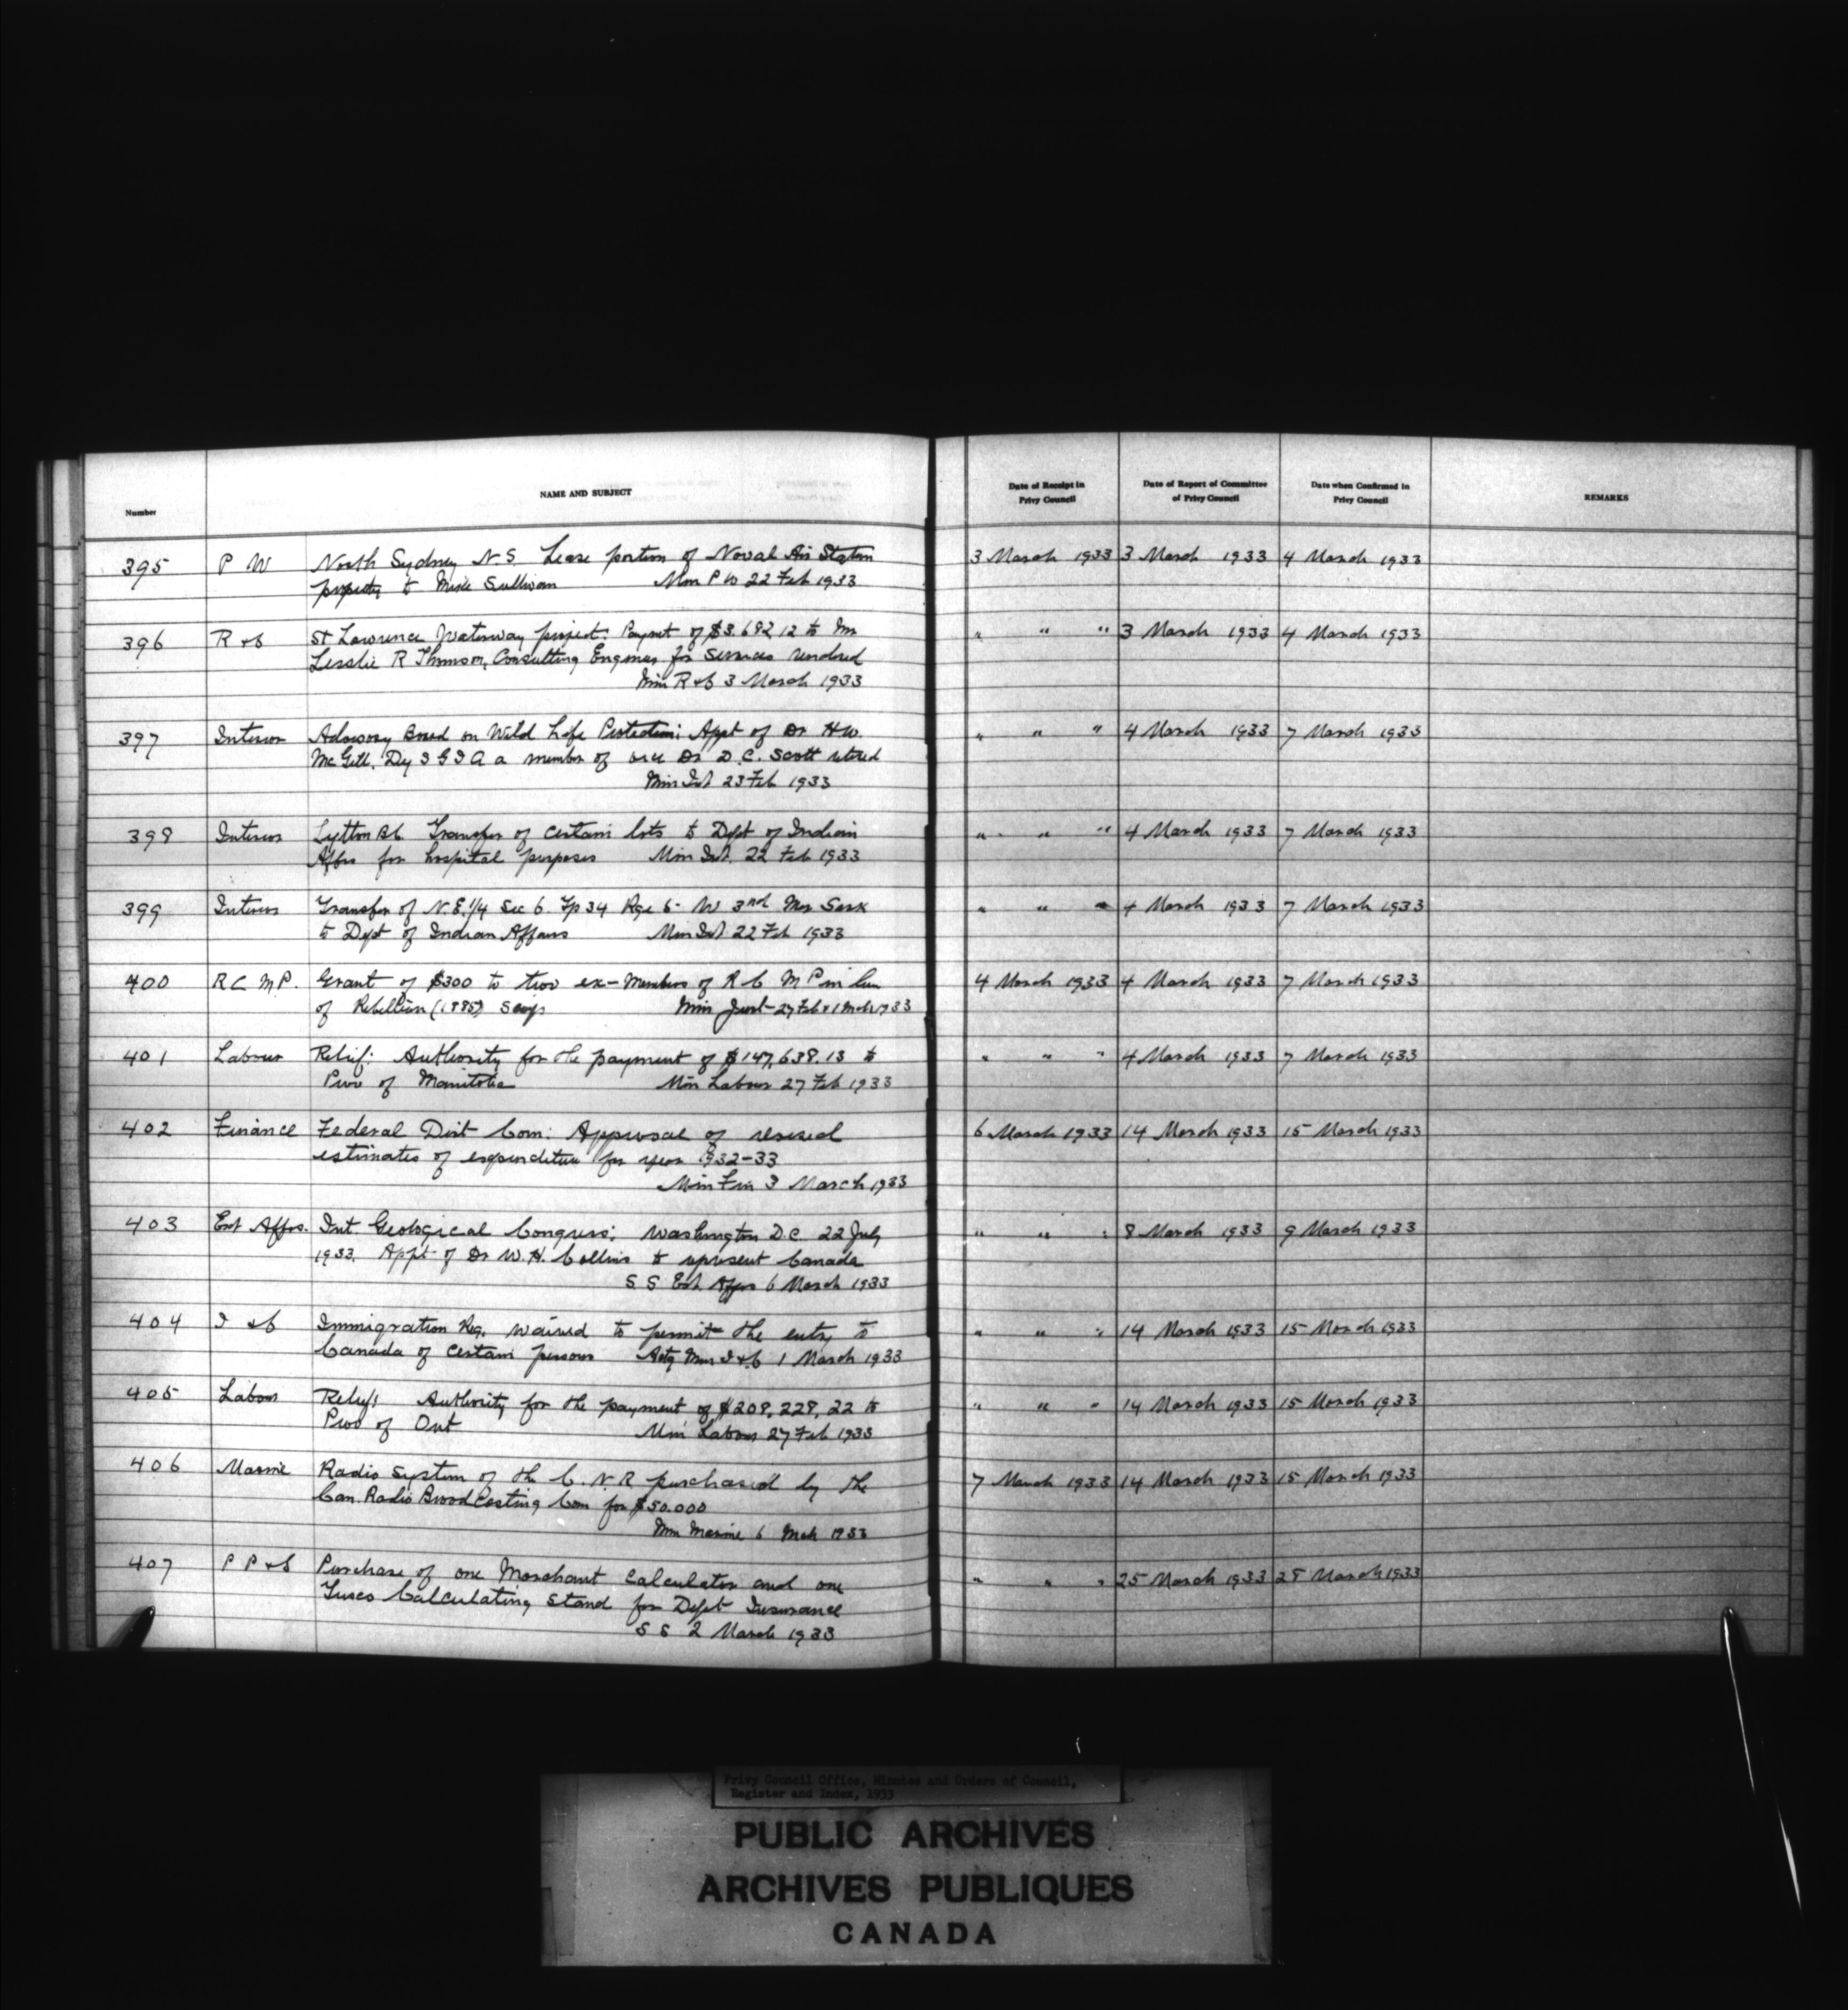 Number
NAME AND SUBJECT
Date of Receipt in Privy Council
Date of Report of Committee of Privy Council
Date when Confirmed in Privy Council
REMARKS
395 P W North Sydney N.S. Lease portion of Naval Air Station 3 March 1933 3 March 1933 4 March 1933
property to Mike Sullivan Min P W 22 Feb 1933
396 R & C St Lawrence Waterway project: Paymet of $3.682 12 to Mr " " " 3 March 1933 4 March 1933
Lesslie R Thomson, Consulting Engineer for services rendered
Min R & C 3 March 1933
397 Interior Advisory Board on Wild Life Protection: Appt of Dr H W. " " " 4 March 1933 7 March 1933
McGill, Dy S G I A a member of vice Dr D.C. Scott retired
Min Int 23 Feb 1933
398 Interior Lytton B C. Transfer of certain lots to Dept of Indian " " " 4 March 1933 7 March 1933
Affrs for hospital purposes Min Int. 22 Feb 1933
399 Interior Transfer of N.E. 1/4 Sec 6. Tp 34 Rge 6- W 3rd Mer Sask " " " 4 March 1933 7 March 1933
to Dept of Indian Affairs Min Int 22 Feb 1933
400 R C M.P. Grant of $300 to two ex-Members of R C M P in lieu 4 March 1933 4 March 1933 7 March 1933
of Rebellion (1885) Scrip Min Just 27 Feb & 1 Mch 1933
401 Labour Relief: Authority for the payment of $147,638.13 to " " " 4 March 1933 7 March 1933
Prov of Manitoba Min Labour 27 Feb 1933
402 Finance Federal Dist Com: Approval of revised 6 March 1933 14 March 1933 15 March 1933
estimates of expenditure for year 1932-33
Min Fin 3 March 1933
403 Ext Affrs. Int. Geological Congress: Washington D.C. 22 July " " " 8 March 1933 9 March 1933
1933. Appt of Dr W.H. Collins to represent Canada
S S Ext. Affrs 6 March 1933
404 I & C Immigration Reg. waived to permit the entry to " " " 14 March 1933 15 March 1933
Canada of certain persons Actg Min I & C 1 March 1933
405 Labour Relief: Authority for the payment of $208,228,22 to " " " 14 March 1933 15 March 1933
Prov of Ont Min Labour 27 Feb 1933
406 Marine Radio System of the C.N.R purchased by the 7 March 1933 14 March 1933 15 March 1933
Can. Radio Broad Casting Com for $50.000
Min Marine 6 Mch 1933
407 P P & S Purchase of one Marchant Calculator and one " " " 25 March 1933 28 March 1933
Calculating stand for Dept Insurance
S S 2 March 1933
Privy Council Office, Minutes and Orders of Council,
Register and Index, 1933
PUBLIC ARCHIVES
ARCHIVES PUBLIQUES
CANADA